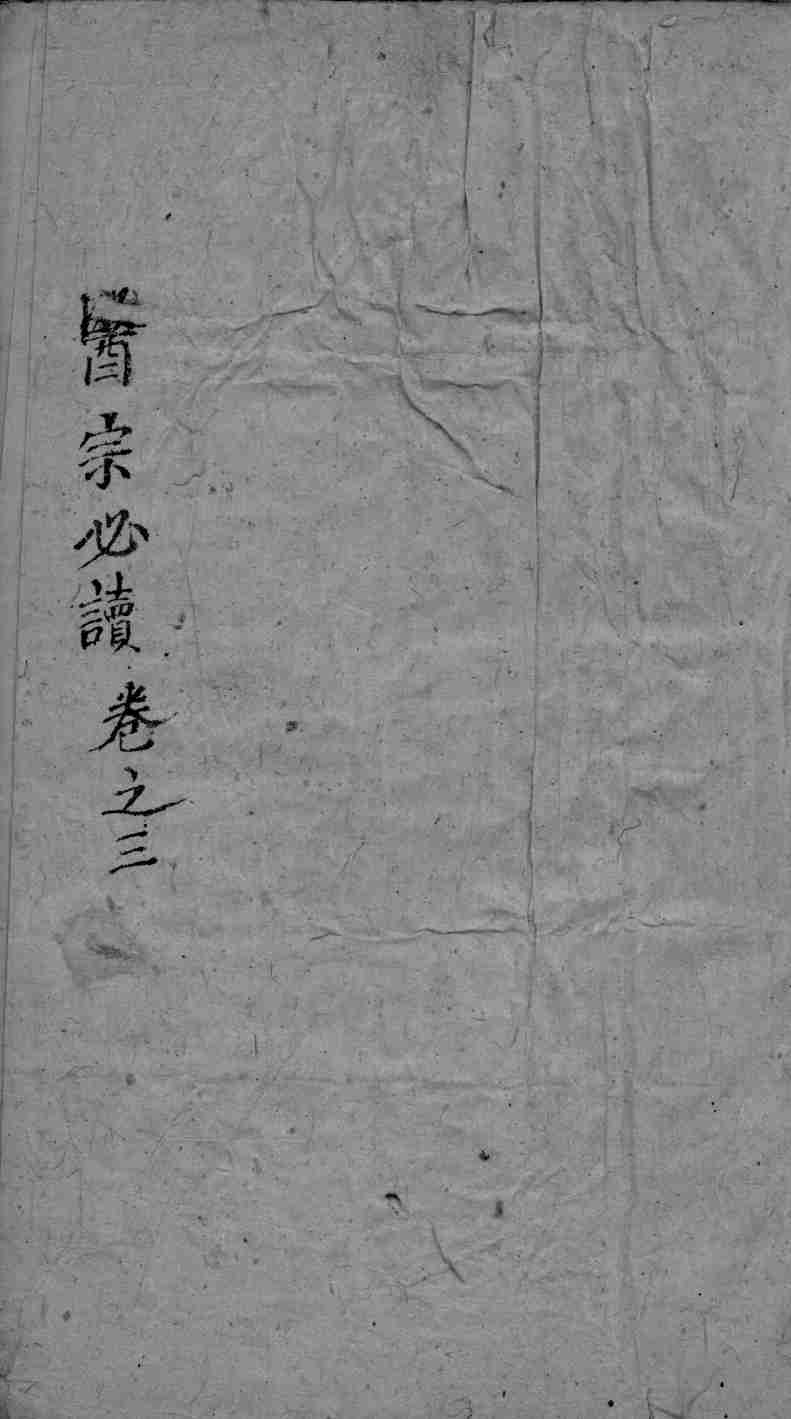 醫宗必讀卷之三